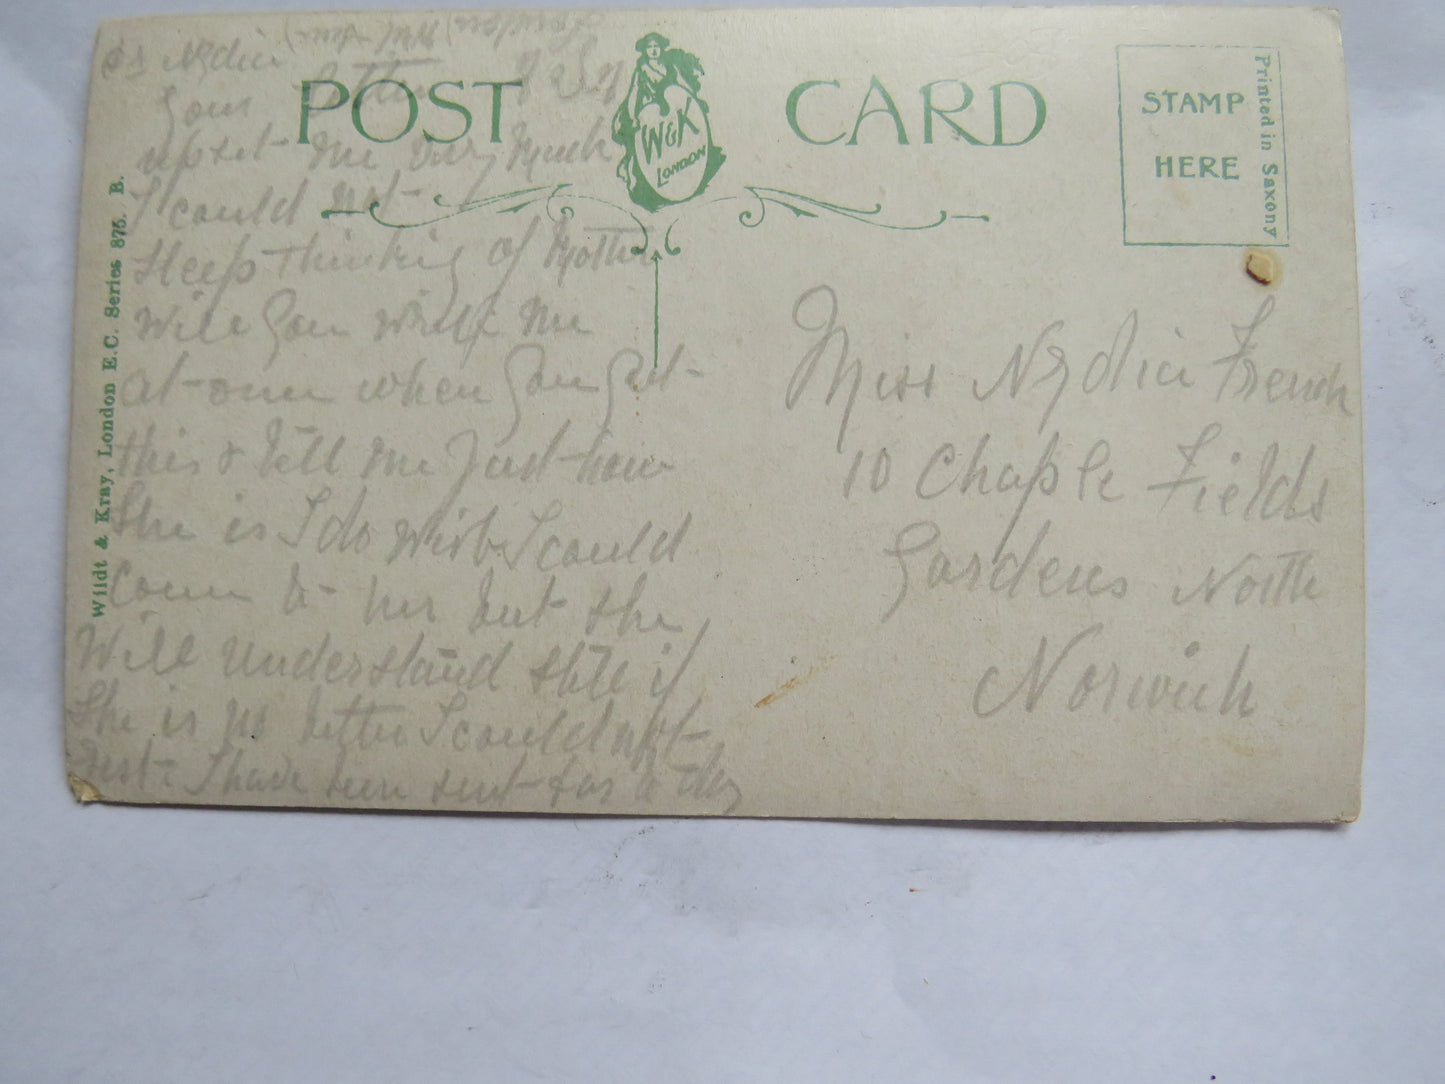 POST CARD
W&K
LONDON
STAMP
HERE
Printed in Saxony
Wildt & Kray, London E.C. Series 875. B.
Nydia
Your letter
upset me very much
I could not
sleep thinking of Mother
Will you write me
at once when you get
this & tell me just how
She is I do wish I could
come to her but she
Will understand still if
She is no better I could not
rest I have been sent for to
Miss Nydia French
10 Chaple Fields
Gardens North
Norwich